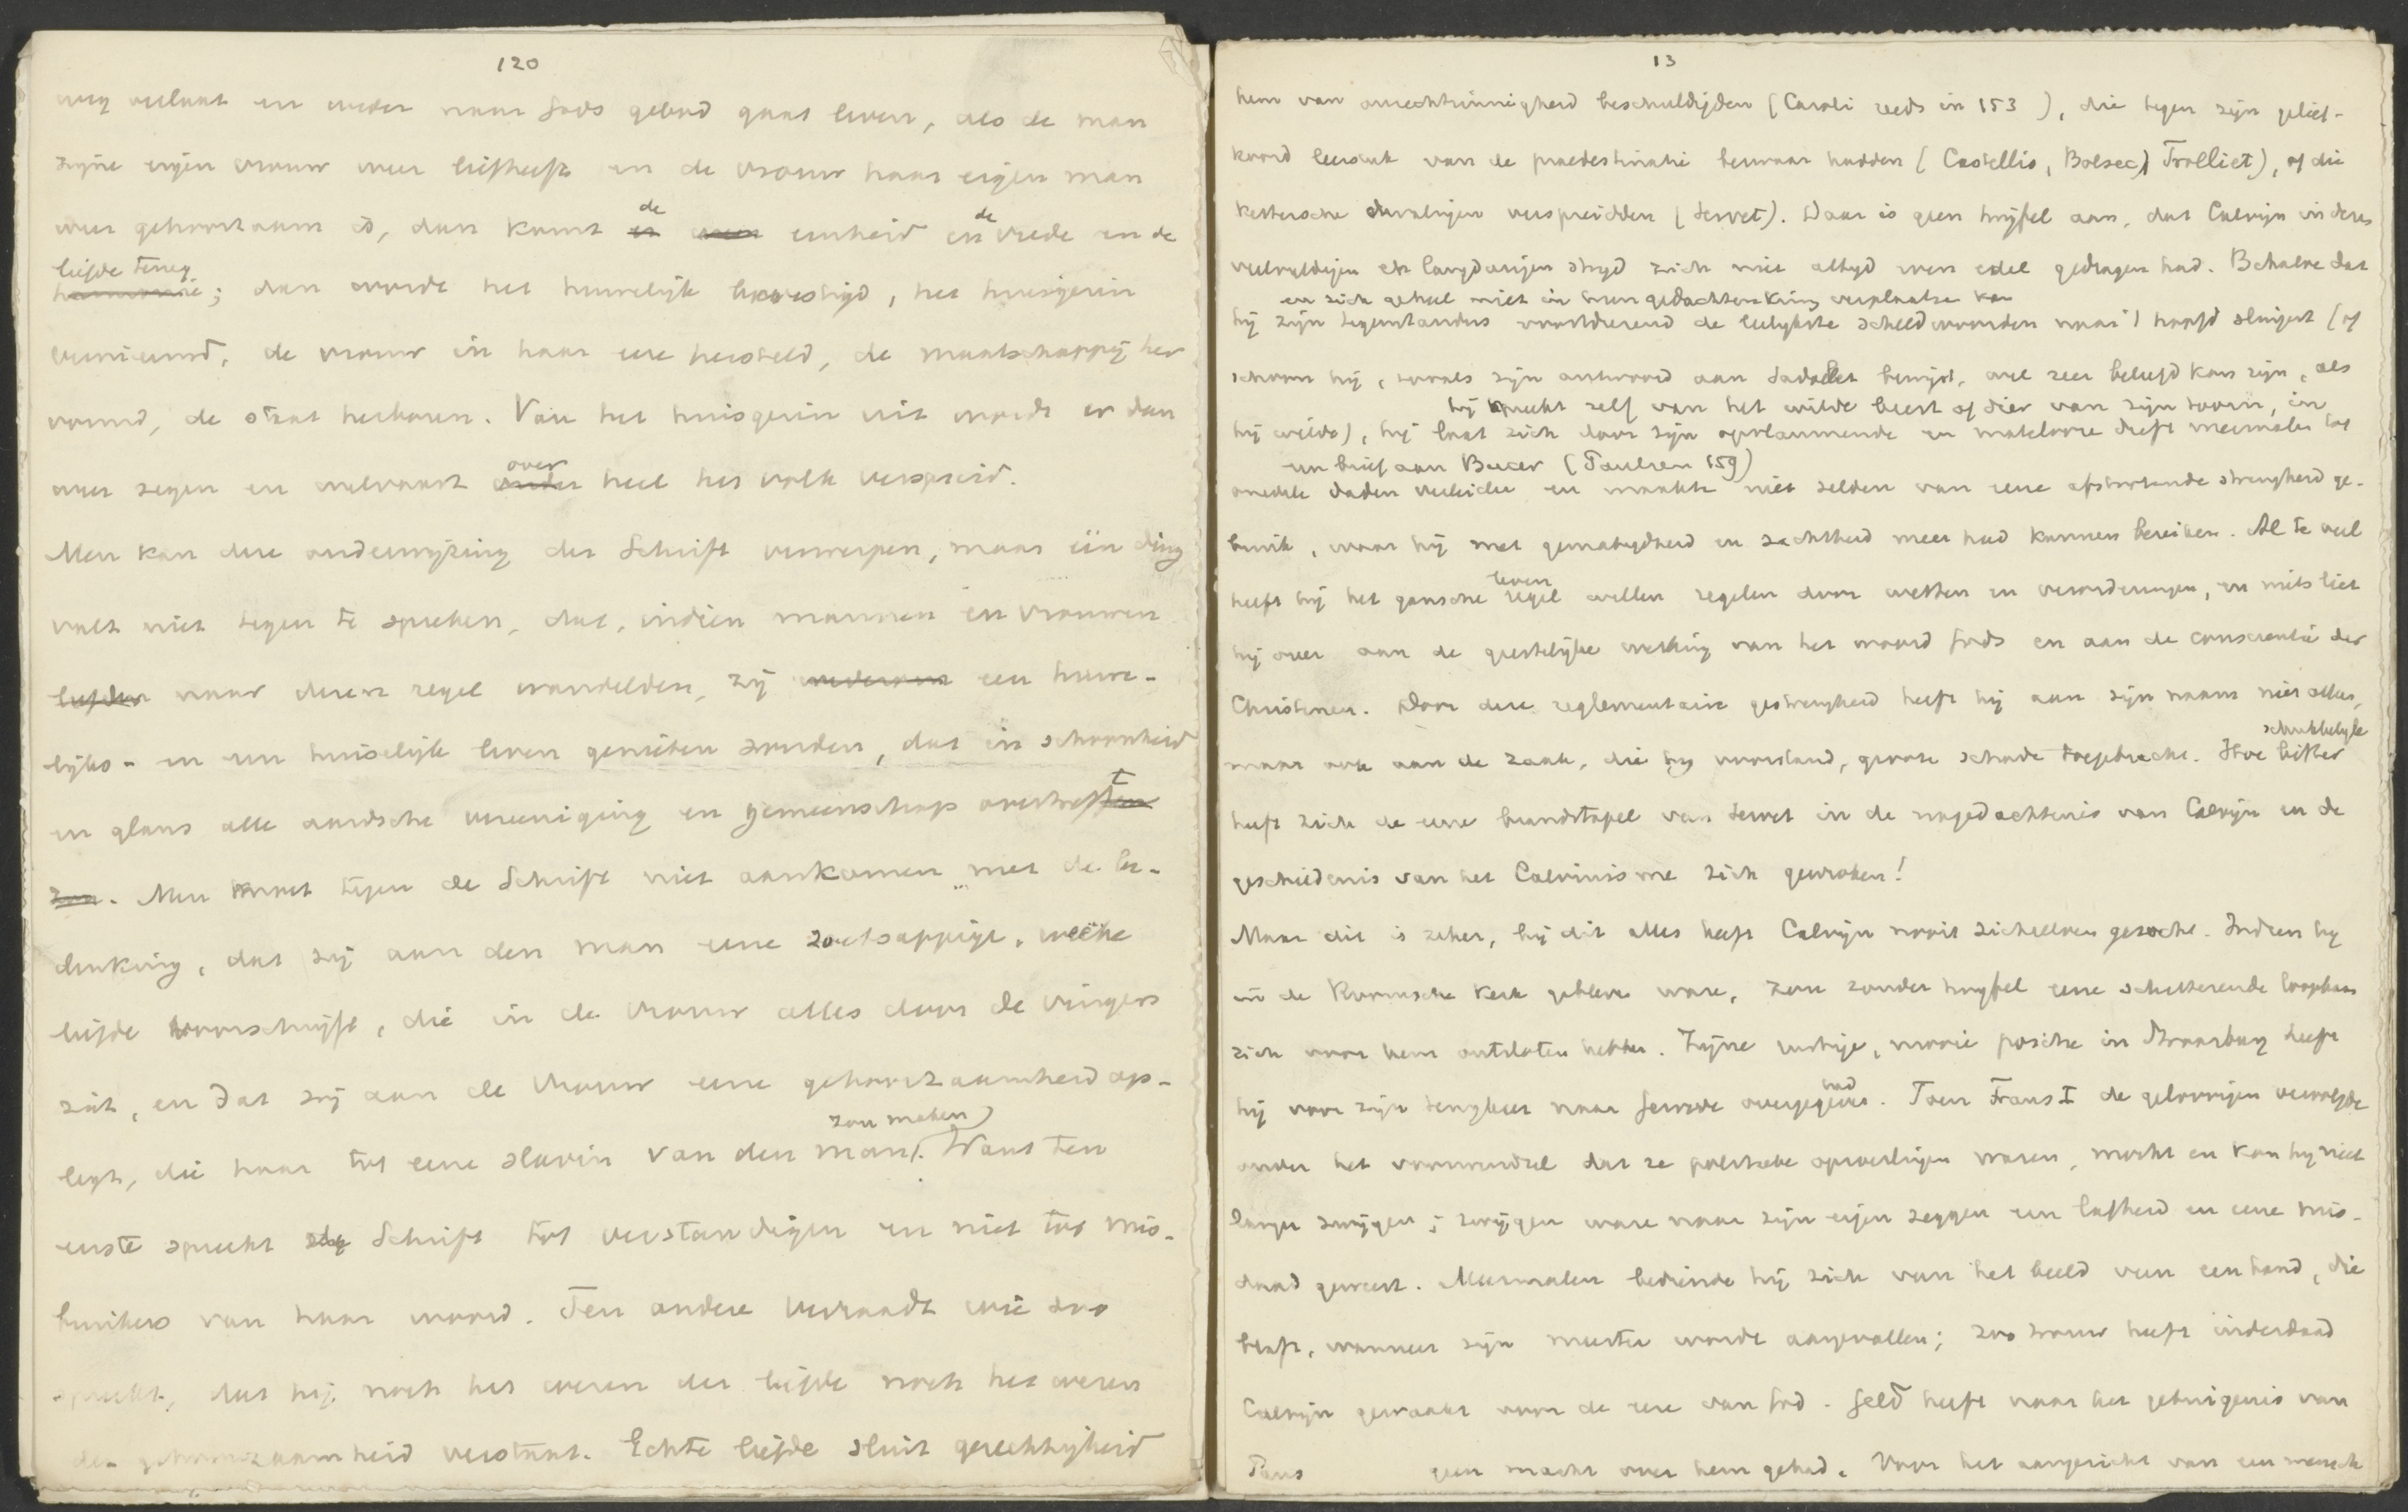 120
weg verlaat en weder naar Gods gebod gaat leven, als de man
zijne eigen vrouw weer liefheeft en de vrouw haar eigen man
weer gehoorzaam is, dan komt de eenheid en de vrede en de
liefde terug; dan wordt het huwelijk bevestigd, het huisgezin
vernieuwd, de vrouw in haar eere hersteld, de maatschappij her
vormd, de staat herboren. Van het huisgezin uit wordt er dan
weer zegen en welvaart over heel het volk verspreid.
Men kan deze onderwijzing der Schrift verwerpen, maar één ding
valt niet tegen te spreken, dat, indien mannen en vrouwen
naar dezen regel wandelden, zij een huwe-
lijks- en een huiselijk leven genieten zouden, dat in schoonheid
en glans alle aardsche vereeniging en gemeenschap overtreft
. Men komt tegen de Schrift niet aankomen met de be-
denking, dat zij aan den man eene zoetsappige, weeke
liefde voorschrijft, die in de vrouw alles door de vingers
ziet, en dat zij aan de vrouw eene gehoorzaamheid op-
legt, die haar tot eene slavin van den man zou maken. Want ten
eerste spreekt de Schrift tot verstandigen en niet tot mis-
bruikers van haar woord. Ten andere verraadt wie zoo
spreekt, dat hij noch het wezen der liefde noch het wezen
der gehoorzaamheid verstaat. Echte liefde sluit gerechtigheid
13
hem van onrechtzinnigheid beschuldigden (Caroli reeds in 153 ), die tegen zijn gelief-
koosd leerstuk van de praedestinatie bezwaar hadden (Castellio, Bolsec, Trolliet), of die
kettersche dwalingen verspreidden (Servet). Daar is geen twijfel aan, dat Calvijn in dezen
veelvuldigen en langdurigen strijd zich niet altijd even edel gedragen had. Behalve dat
en zich geheel niet in hun gedachtenkring verplaatsen kan
hij zijn tegenstanders voortdurend de leelijkste scheldwoorden naar 't hoofd slingert (of
schoon hij, zooals zijn antwoord aan Sadolet bewijst, wel zeer beleefd kan zijn, als
hij spreekt zelf van het wilde beest of dier van zijn toorn, in
hij wilde), hij laat zich door zijn opvlammende en matelooze drift meermalen tot
een brief aan Bucer (Paulsen 159)
onedele daden verleiden en maakte niet zelden van eene afstootende strengheid ge-
bruik, waar hij met gematigdheid en zachtheid meer had kunnen bereiken. Al te veel
heeft hij het gansche leven willen regelen door wetten en verordeningen, en niets liet
hij over aan de geestelijke werking van het woord Gods en aan de conscientie der
Christenen. Door deze reglementaire gestrengheid heeft hij aan zijn naam niet alleen,
maar ook aan de zaak, die hij voorstond, groote schade toegebracht. Hoe schrikkelijk bitter
heeft zich de eene brandstapel van Servet in de nagedachtenis van Calvijn en de
geschiedenis van het Calvinisme zich gewroken!
Maar dit is zeker, bij dit alles heeft Calvijn nooit zichzelven gezocht. Indien hij
in de Roomsche kerk gebleven ware, zou zonder twijfel eene schitterende loopbaan
zich voor hem ontsloten hebben. Zijne rustige, mooie positie in Straatsburg heeft
hij voor zijn terugkeer naar Genève overgegeven had. Toen Frans I de geloovigen vervolgde
onder het voorwendsel dat ze politieke oproerlingen waren, mocht en kon hij niet
langer zwijgen; zwijgen ware naar zijn eigen zeggen een lafheid en eene mis-
daad geweest. Meermalen bediende hij zich van het beeld van een hond, die
blaft, wanneer zijn meester wordt aangevallen; zoo trouw heeft inderdaad
Calvijn gewaakt voor de eere van God. Geld heeft naar het getuigenis van
Paus geen macht over hem gehad. Voor het aangezicht van een mensch